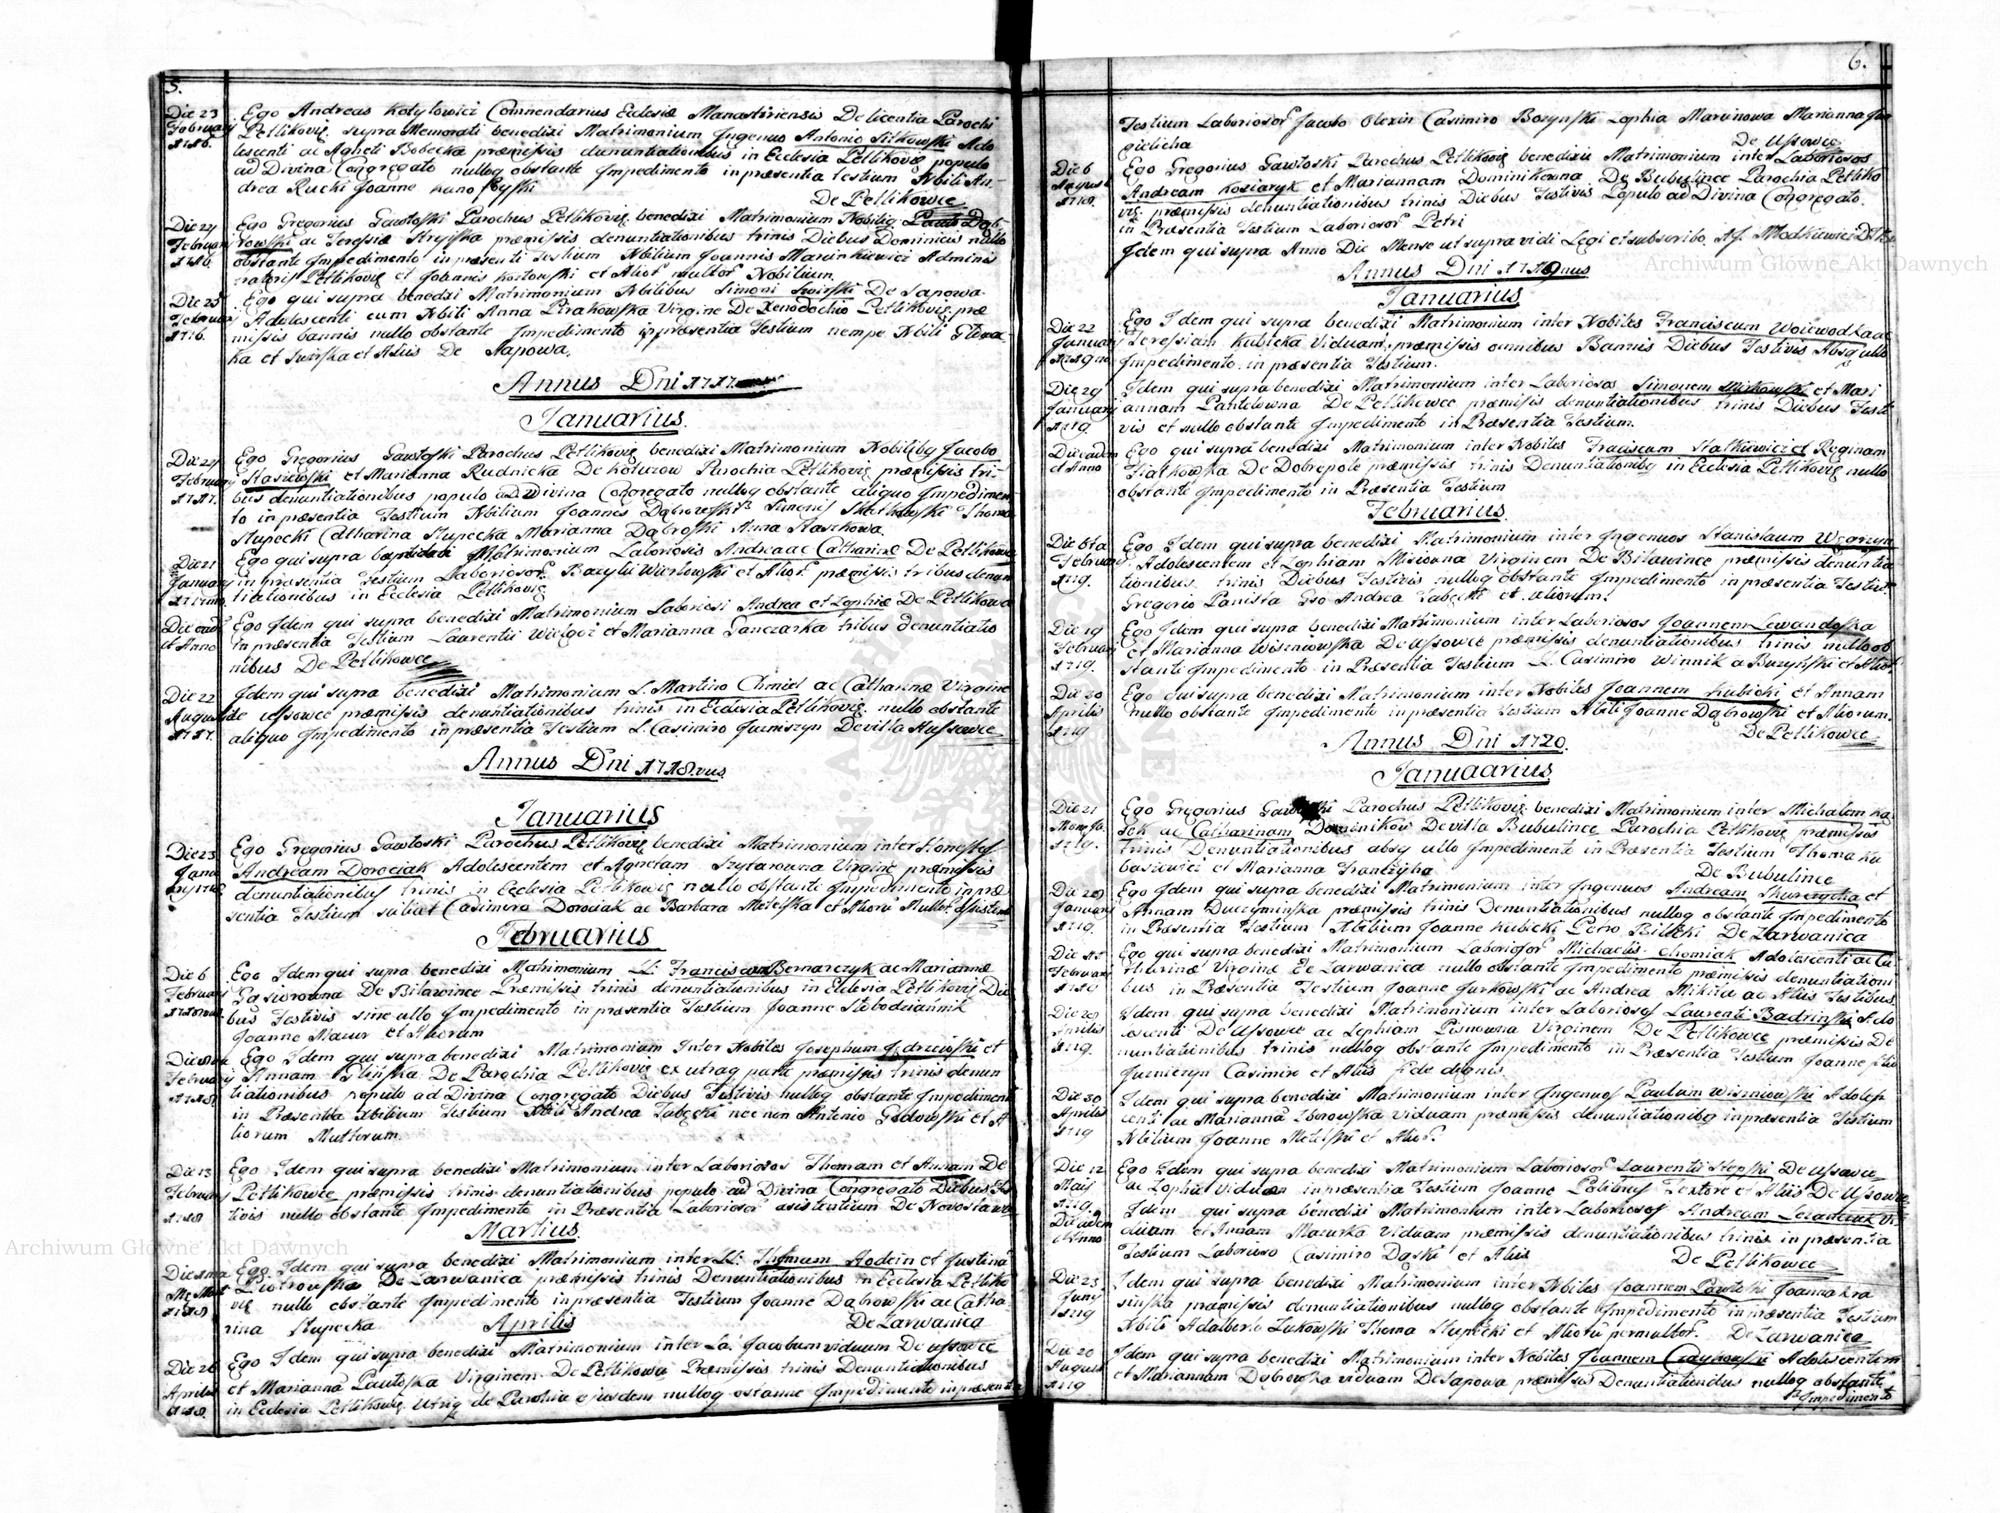 5.
Die 23
February
1716.
Ego Andreas Kotylowicz Commendarius Ecclesiæ Manastiriensis De licentia Parochi
Petlikovię supra Memorati benedixi Matrimonium Ingenuo Antonio Sitkowski Ado
lescenti ac Agneti Bobecka præmissis denuntiationibus in Ecclesia Petlikovię populo
ad Divina Congregato nulloq obstante Impedimento in præsentia Testium Nbili An-
drea Rucki Joanne
De Petlikowce
Die 24
February
1716.
Ego Gregorius Gawłoski Parochus Petlikovię benedixi Matrimonium Nobilię Paulo Dąb-
rowski ac Teressiæ Stryiska præmissis denuntiationibus trinis Diebus Dominicus nullo
obstante Impedimento in præsenti Testium Nbilium Joannis Marcinkiewicz Adminis
tratoris Petlikovię et Johannis Kozłowski et Alior multor Nobilium
Die 25
February
1716.
Ego qui supra benedixi Matrimonium Nbilibus Simoni De Sapowa
Adolescenti cum Nbili Anna Pirakowska Virgine De Xenodochio Petlikovię præ
missis bannis nullo obstante Impedimento in præsentia Testium nempe Nbili Głowa-
ka et et Aliis De Sapowa.
Annus Dni 1717
Januarius.
Die 24
February
1717.
Ego Gregorius Gawłoski Parochus Petlikovię benedixi Matrimonium Nobilibq Jacobo
Stasiewski et Marianna Rudnicka De Koturow Parochia Petlikovię præmissis tri-
bus denuntiationibus populo ad Divina Congregato nulloq obstante aliquo Impedimen
to in præsentia Testium Nbilium Joannis Dąbrowski Simonis Thoma
Słupecki Catharina Słupecka Marianna Dąbroski Anna Staszkowa
Die 21
January
Ego qui supra Matrimonium Laboriosis Andrea ac Catharinæ De Petlikowce
in præsentia Testium Laborioror Bazylii Wierłowski et Alior præmissis tribus denun
tiationibus in Ecclesia Petlikovię
Die ead
et Anno
Ego Idem qui supra benedixi Matrimonium Laboriosi Andrea et Zophiæ De Petlikowa
in præsentia Testium Laurentii Wielgoz et Marianna Ganczarka tribus denuntiatio
nibus De Petlikowce
Die 22
Augusti
1717.
Idem qui supra benedixi Matrimonium L. Martino Chmiel ac Catharinæ Virgine
De Ussowce præmissis denuntiationibus trinis in Ecclesia Petlikovię nullo obstante
aliquo Impedimento in præsentia Testium L. Casimiro De villa Hussowce
Annus Dni 1718vus
Januarius
Die 23
Janu
ary 1718
Ego Gregorius Gawłoski Parochus Petlikovię benedixi Matrimonium inter Honestos
Andream Dorociak Adolescentem et Agnetam Szytarowna Virginē præmissis
denuntiationibus trinis in Ecclesia Petlikovię nullo obstante Impedimento in præ
sentia Testium Casimiro Dorociak ac Barbara Metelska et Aliorū Multor assisten
Februarius
Die 6
February
Ego Idem qui supra benedixi Matrimonium LL. Franciscum Bernarczyk ac Mariannæ
Gasiorowna De Bilawince Præmissis trinis denuntiationibus in Eclesia Petlikovię Die
bus Festivis sine ullo Impedimento in præsentia Testium Joanne Słobodziannik
Joanne Mazur et Aliorum
February
1718.
Ego Idem qui supra benedixi Matrimonium Inter Nobiles Josephum Jędrzeioski et
Annam Blińska De Parochia Petlikovię ex utraq parte præmissis trinis denun
tiationibus populo ad Divina Congregato Diebus Festivis nulloq obstante Impediment
in Præsentia Nbilium Testium Nbili Andrea Jabęcki nec non Antonio Godowski et A
liorum Multorum.
Die 13
February
1718
Ego Idem qui supra benedixi Matrimonium inter Laboriosos Thomam et Annam De
Petlikowce præmissis trinis denuntiationibus populo ad Divina Congregato Diebus Fes
tivis nullo obstante Impedimento in Præsentia Laborior asistentium De Nowostawce
Martius.
Ego Idem qui supra benedixi Matrimonium inter LL: Thomam Hodein et Justina
Piotrowska De Zarwanica præmissis trinis Denuntiationibus in Ecclesia Petliko
vię nullo obstante Impedimento in præsentia Testium Joanne Dąbrowski ac Catha
rina Słupecka
De Zarwanica
Aprilis
Die 26
Aprilis
1718.
Ego Idem qui supra benedixi Matrimonium inter La: Jacobum viduum De Ussowce
et Mariannā Pawłoska Virginem De Petlikowa Præmissis trinis Denuntiationibus
in Ecclesia Petlikovię utriq de Parochia ejusdem nulloq ostanne Impedimento in præsentia
6.
Testium Laborioror Jacobo Olexin Casimiro Bozynski Zophia Marunowa Marianna Ja
gielicha
De Ussowce
Die 6
August
1718.
Ego Gregorius Gawłoski Parochus Petlikovię benedixi Matrimonium inter Laboriosos
Andream Koziaryk et Mariannam Dominikowna De Bubulince Parochia Petliko
vię præmissis denuntiationibus trinis Diebus Festivis Populo ad Divina Congregato.
in Præsentia Testium Laborioror Petri
Idem qui supra Anno Die Mense ut supra vidi Legi et subscribo.
Annus Dni 1719nus
Januarius
Die 22
January
Ego Idem qui supra benedixi Matrimonium inter Nobiles Franciscum Woiewodka ac
Teressiam Kubicka Viduam præmissis omnibus Bannis Diebus Festivis Absq ullo
Impedimento in præsentia Testium.
Die 29
January
1719.
Idem qui supra benedixi Matrimonium inter Laboriosos Simonem et Mari
annam Pantelowna De Petlikowce præmissis denuntiationibus trinis Diebus Festi
vis et nullo obstante Impedimento in Præsentia Testium.
Die eadem
et Anno
Ego qui supra benedixi Matrimonium inter Nobiles Franciscum Statkiewicz et Reginam
Fiałkowska De Dobropole præmissis trinis Denuntiationibq in Ecclesia Petlikovię nullo
obstante Impedimento in Præsentia Testium
Februarius.
Die 8va
February
1719.
Ego Idem qui supra benedixi Matrimonium inter Ingenuos Stanislaum Węgrzyn
Adolescentem et Zophiam Misiowna Virginem De Bilawince præmissis denuntia
tionibus trinis Diebus Festivis nulloq obstante Impedimento in præsentia Testium
Gregorio Panista Gso Andrea Jabęcki et aliorum.
Die 19
February
1719.
Ego Idem qui supra benedixi Matrimonium inter Laboriosos Joannem Lewandoska
et Marianna Wiszniowska De Ussowce præmissis denuntiationibus trinis nullo ob
stante Impedimento in Præsentia Testium L. Casimiro Winnik a Buzynski et Alior
Die 20
Aprilis
1719
Ego qui supra benedixi Matrimonium inter Nobiles Joannem Kubicki et Annam
nullo obstante Impedimento in præsentia Testium Nbili Joanne Dąbrowski et Aliorum.
De Petlikowce
Annus Dni 1720.
Januaarius
Die 21
1719.
Ego Gregorius Parochus Petlikovię benedixi Matrimonium inter Michalem Ka
sek ac Catharinam Dominikow De villa Bubulince Parochia Petlikovię præmissis
trinis Denuntiationibus absq ullo Impedimento in Præsentia Testium Thoma Ku
basiewicz et Marianna Franczycha
De Bubulince
January
1719.
Ego Idem qui supra benedixi Matrimonium inter Ingenuos Andream et
Annam Duczyminska præmissis trinis Denuntiationibus nulloq obstante Impedimento
in Præsentia Testium Nbilium Joanne Kubicki Petro Bilicki De Zarwanica
February
Ego qui supra benedixi Matrimonium Laborioror Michaelis Chomiak Adolescenti ac Ca
tharinæ Virginæ De Zarwanica nullo obstante Impedimento præmissis denuntiationi
bus in Præsentia Testium Joanne Jurkowski ac Andrea Mikita ac Aliis Testibus
Aprilis
1719.
Idem qui supra benedixi Matrimonium inter Laboriosos Laurenti Badzinski Ado
lescenti De Ussowce ac Zephiam Pisnowna Virginem De Petlikowce præmissis De
nuntiationibus trinis nulloq obstante Impedimento in Præsentia Testium Joanne
Casimiro et Aliis fide dignis
Die 30
Aprilis
1719
Idem qui supra benedixi Matrimonium inter Ingenuos Paulum Wisniowski Adoles
centi ac Mariannā Zborowska Viduam præmissis denuntiationibq in præsentia Testium
Nbilium Joanne Metelski et Alior.
Die 12
Maii
1719.
Ego Idem qui supra benedixi Matrimonium Laborioror Laurentii Stepski De Ussowce
ac Zophiæ Viduam in præsentia Testium Joanne Textore et Aliis De Ussowce
Die eadem
et Anno
Idem qui supra benedixi Matrimonium inter Laboriosos Andream Vi
duum et Annam Mazurka Viduam præmissis denuntiationibus trinis in præsentia
Testium Laborioso Casimiro Dąski et Aliis
De Petlikowce
Die 23
Juny
1719
Idem qui supra benedixi Matrimonium inter Nbiles Joannem Pawłoski Joanna Kra
sinska præmissis denuntiationibus nulloq obstante Impedimento in præsentia Testium
Nbili Adalberto Zukowski Thoma Słupecki et Aliorū permultor. De Zarwanica
Die 20
August
1719
Idem qui supra benedixi Matrimonium inter Nobiles Joannem Adolescentem
et Mariannam Dąbrowska viduam De Sapowa præmissis Denuntiationibus nulloq obstante
Impedimento
Archiwum Główne Akt Dawnych
Archiwum Główne Akt Dawnych